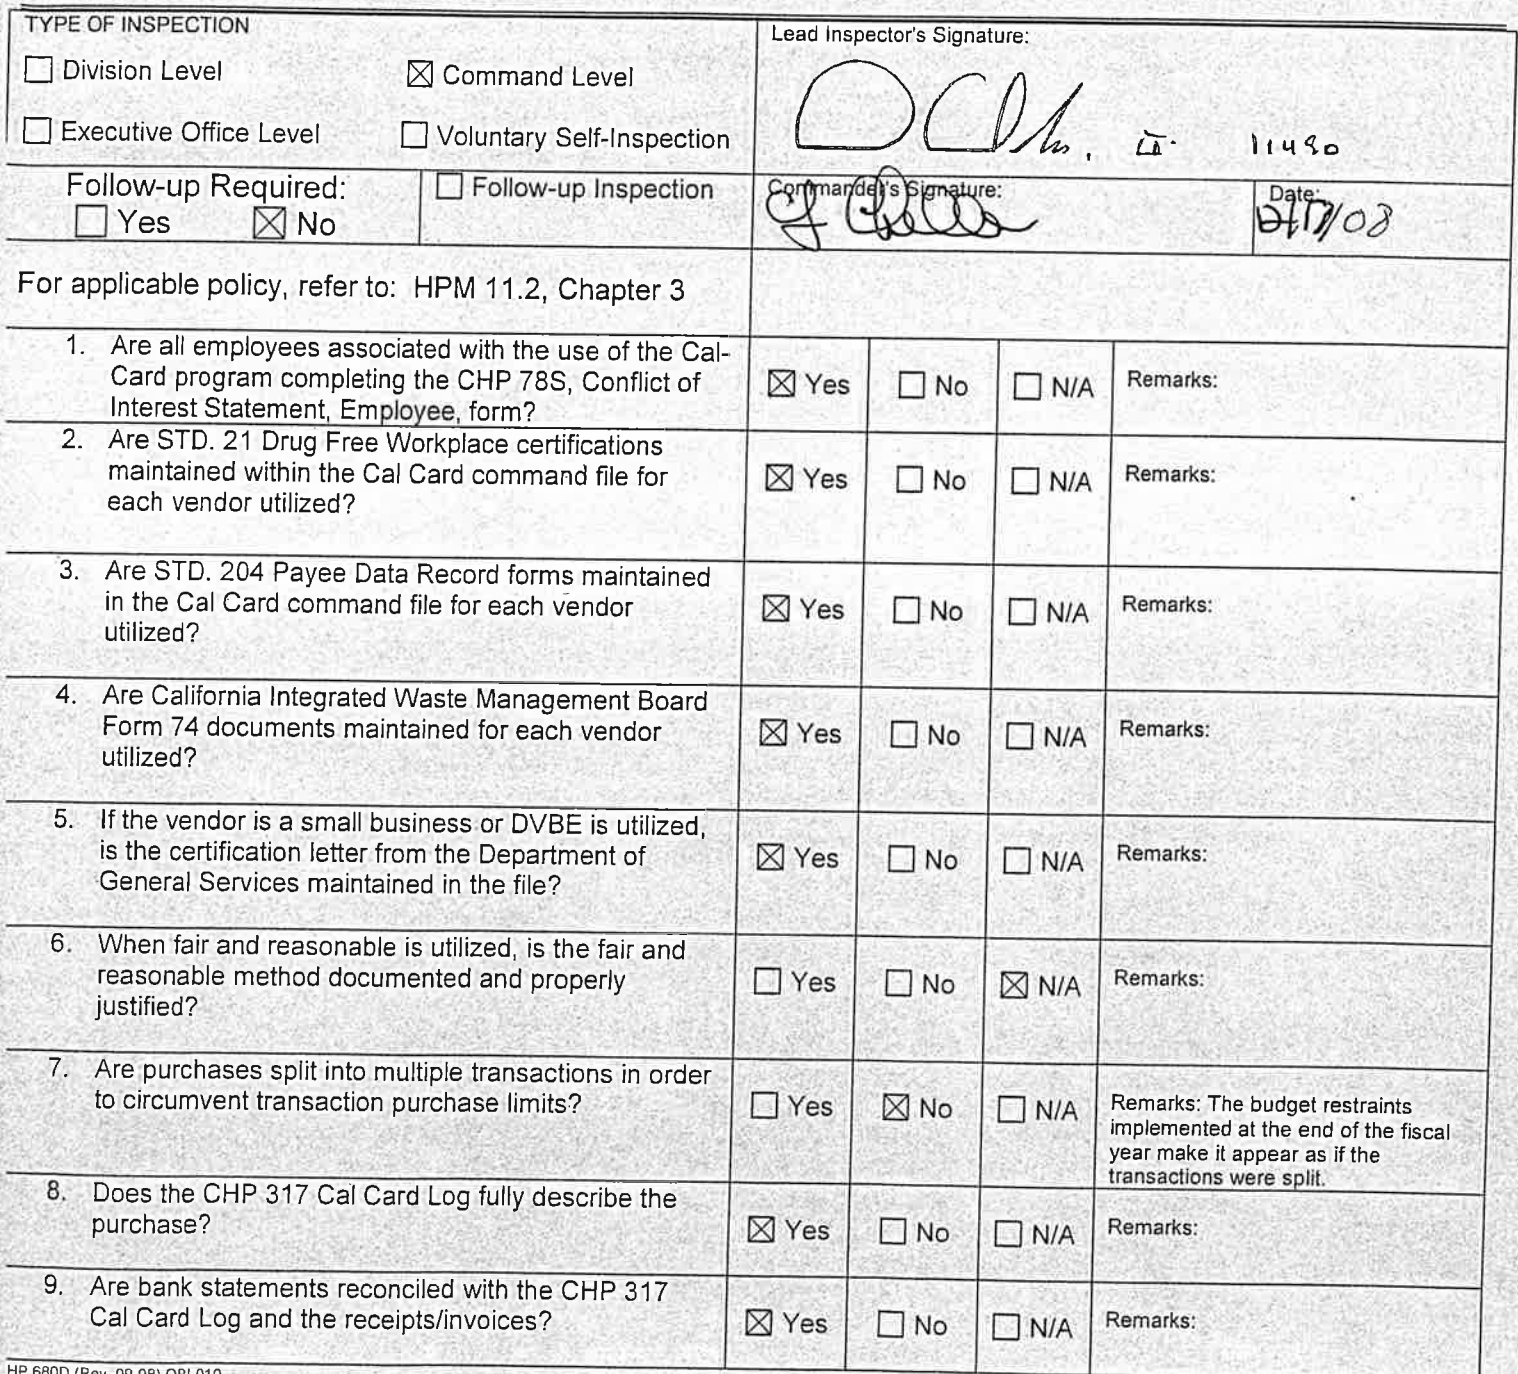 TYPE OF INSPECTION
Lead Inspector's Signature:
☐ Division Level ☒ Command Level
☐ Executive Office Level ☐ Voluntary Self-Inspection
II. 11490
Follow-up Required:
☐ Yes ☒ No
☐ Follow-up Inspection
Commander's Signature:
Date:
For applicable policy, refer to: HPM 11.2, Chapter 3
1. Are all employees associated with the use of the Cal-
Card program completing the CHP 78S, Conflict of
Interest Statement, Employee, form?
☒ Yes ☐ No ☐ N/A Remarks:
2. Are STD. 21 Drug Free Workplace certifications
maintained within the Cal Card command file for
each vendor utilized?
☒ Yes ☐ No ☐ N/A Remarks:
3. Are STD. 204 Payee Data Record forms maintained
in the Cal Card command file for each vendor
utilized?
☒ Yes ☐ No ☐ N/A Remarks:
4. Are California Integrated Waste Management Board
Form 74 documents maintained for each vendor
utilized?
☒ Yes ☐ No ☐ N/A Remarks:
5. If the vendor is a small business or DVBE is utilized,
is the certification letter from the Department of
General Services maintained in the file?
☒ Yes ☐ No ☐ N/A Remarks:
6. When fair and reasonable is utilized, is the fair and
reasonable method documented and properly
justified?
☐ Yes ☐ No ☒ N/A Remarks:
7. Are purchases split into multiple transactions in order
to circumvent transaction purchase limits?
☐ Yes ☒ No ☐ N/A Remarks: The budget restraints
implemented at the end of the fiscal
year make it appear as if the
transactions were split.
8. Does the CHP 317 Cal Card Log fully describe the
purchase?
☒ Yes ☐ No ☐ N/A Remarks:
9. Are bank statements reconciled with the CHP 317
Cal Card Log and the receipts/invoices?
☒ Yes ☐ No ☐ N/A Remarks:
HP 680D (Rev. 09-08) OPI 010